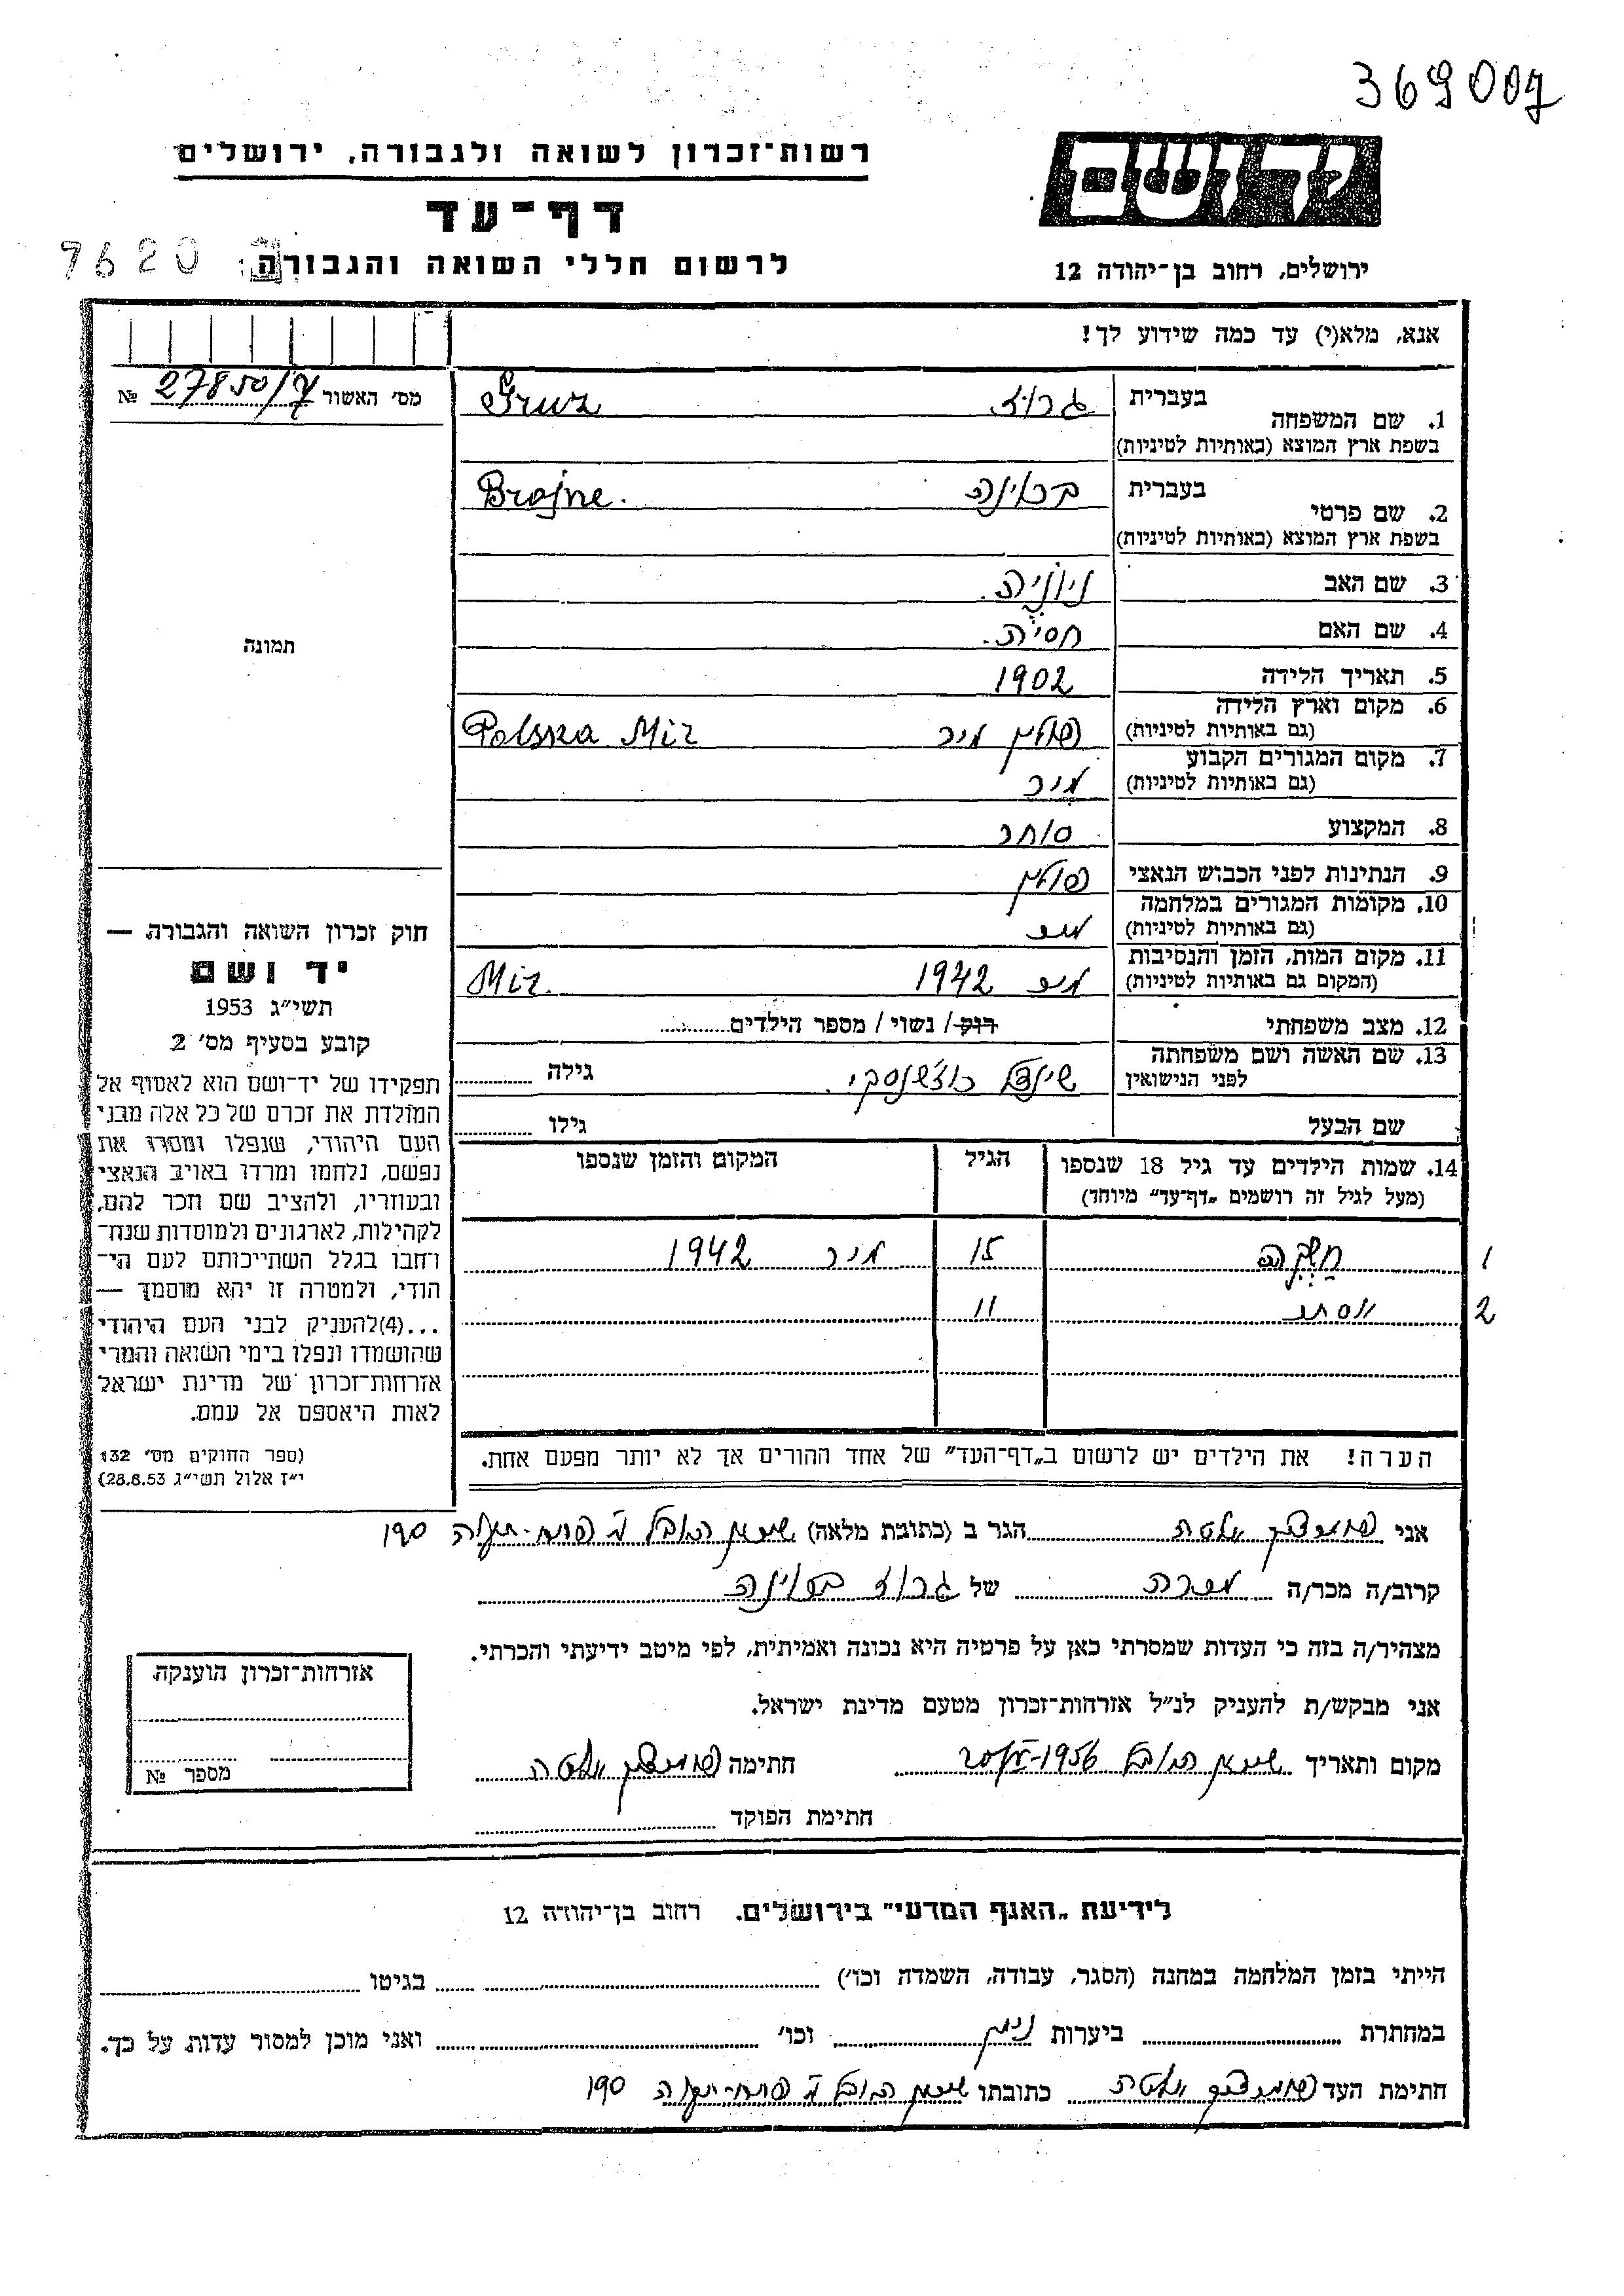 369007
רשות־זכרון לשואה ולגבורה, ירושלים
יד ושם
דף־עד
7620
לרשום חללי השואה והגבורה
ירושלים, רחוב בן־יהודה 12
אנא, מלא(י) עד כמה שידוע לך!
מס׳ האשור 27850/7 №
1. שם המשפחה
בעברית גרוז Gruz
בשפת ארץ המוצא (באותיות לטיניות)
2. שם פרטי
בעברית בראינה Brajne.
בשפת ארץ המוצא (באותיות לטיניות)
3. שם האב
4. שם האם חסיה.
5. תאריך הלידה 1902
6. מקום וארץ הלידה
(גם באותיות לטיניות) פולין מיר Polska Mir
7. מקום המגורים הקבוע
(גם באותיות לטיניות) מיר
8. המקצוע סוחר
9. הנתינות לפני הכבוש הנאצי פולין
10. מקומות המגורים במלחמה
(גם באותיות לטיניות) מיר
11. מקום המות, הזמן והנסיבות
(המקום גם באותיות לטיניות) מיר 1942 Mir.
12. מצב משפחתי רוק / נשוי / מספר הילדים
13. שם האשה ושם משפחתה
לפני הנישואין שיינדל גילה
שם הבעל גילו
14. שמות הילדים עד גיל 18 שנספו
(מעל לגיל זה רושמים „דף־עד״ מיוחד)
הגיל
המקום והזמן שנספו
1 15 מיר 1942
2 אסתר 11
הערה! את הילדים יש לרשום ב„דף־העד״ של אחד ההורים אך לא יותר מפעם אחת.
תמונה
חוק זכרון השואה והגבורה —
יד ושם
תשי״ג 1953
קובע בסעיף מס׳ 2
תפקידו של יד־ושם הוא לאסוף אל
המולדת את זכרם של כל אלה מבני
העם היהודי, שנפלו ומסרו את
נפשם, נלחמו ומרדו באויב הנאצי
ובעוזריו, ולהציב שם וזכר להם,
לקהילות, לארגונים ולמוסדות שנח־
רחבו בגלל השתייכותם לעם הי־
הודי, ולמטרה זו יהא מוסמך —
...(4)להעניק לבני העם היהודי
שהושמדו ונפלו בימי השואה והמרי
אזרחות־זכרון של מדינת ישראל
לאות היאספם אל עמם.
(ספר החוקים מס׳ 132
י״ז אלול תשי״ג 28.8.53)
אני הגר ב (כתובת מלאה) שיכון 190
קרוב/ה מכר/ה מכרה של גרוז בראינה
מצהיר/ה בזה כי העדות שמסרתי כאן על פרטיה היא נכונה ואמיתית, לפי מיטב ידיעתי והכרתי.
אני מבקש/ת להעניק לנ״ל אזרחות־זכרון מטעם מדינת ישראל.
מקום ותאריך שיכון 1956 חתימה
חתימת הפוקד
אזרחות־זכרון הוענקה
מספר №
לידיעת „האגף המדעי״ בירושלים. רחוב בן־יהודה 12
הייתי בזמן המלחמה במחנה (הסגר, עבודה, השמדה וכו׳) בגיטו
במחתרת ביערות וכו׳ ואני מוכן למסור עדות על כך.
חתימת העד כתובתו שיכון 190